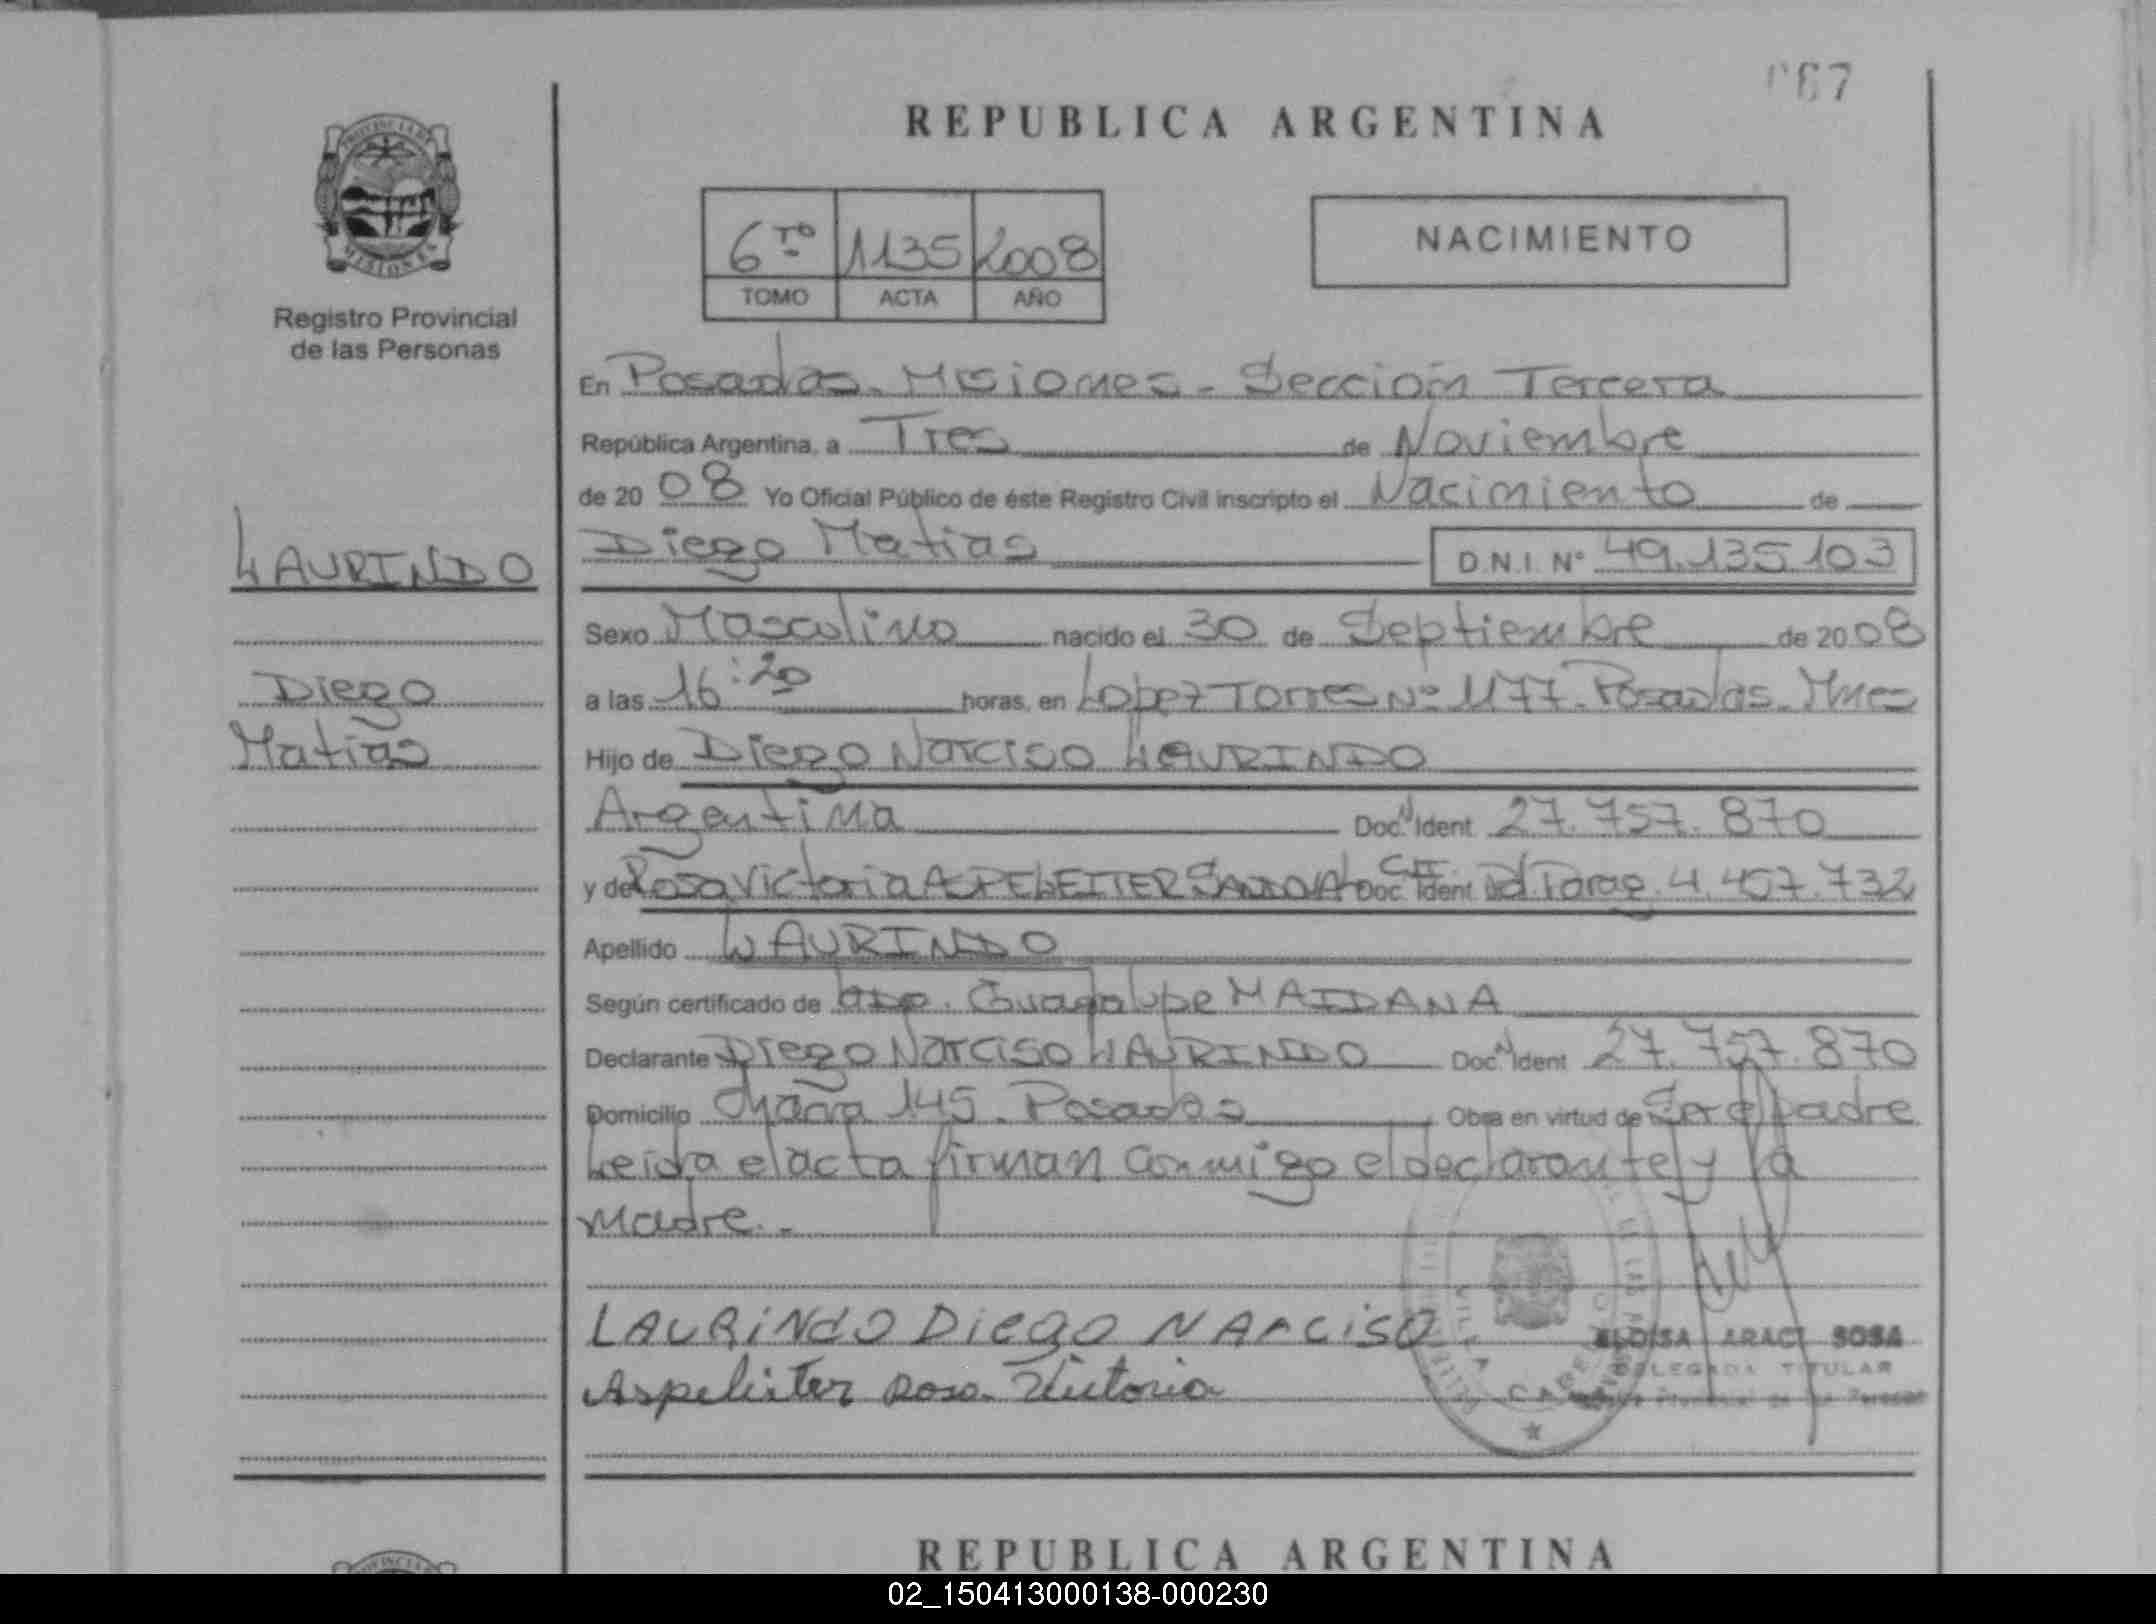 067
REPUBLICA ARGENTINA
PROVINCIA DE
MISIONES
Registro Provincial
de las Personas
6TO 1135 2008
TOMO ACTA AÑO
NACIMIENTO
En Posadas - Misiones - Sección Tercera
República Argentina, a Tres de Noviembre
de 20 08 Yo Oficial Público de éste Registro Civil inscripto el Nacimiento de
Diego Matias D.N.I. Nº 49.135.103
LAURINDO
Diego
Matias
Sexo Masculino nacido el 30 de Septiembre de 20 08
a las 16:20 horas, en Lopez Torres Nº 1177 - Posadas - Mnes
Hijo de Diego Narciso LAURINDO
Argentina Doc. N Ident. 27.757.870
y de Rosa Victoria ASPELEITER Doc. CI Ident. Pol. Parag. 4.457.732
Apellido LAURINDO
Según certificado de Guadalupe MAIDANA
Declarante Diego Narciso LAURINDO Doc. N Ident. 27.757.870
Domicilio Chaña 145 - Posadas Obra en virtud de Ser el padre
Leida el acta firman conmigo el declarante y la
madre.-
LAURINDO DIEGO NARCISO
Aspeleiter Rosa Victoria
ELOISA ARACI SOSA
DELEGADA TITULAR
REPUBLICA ARGENTINA
02_150413000138-000230